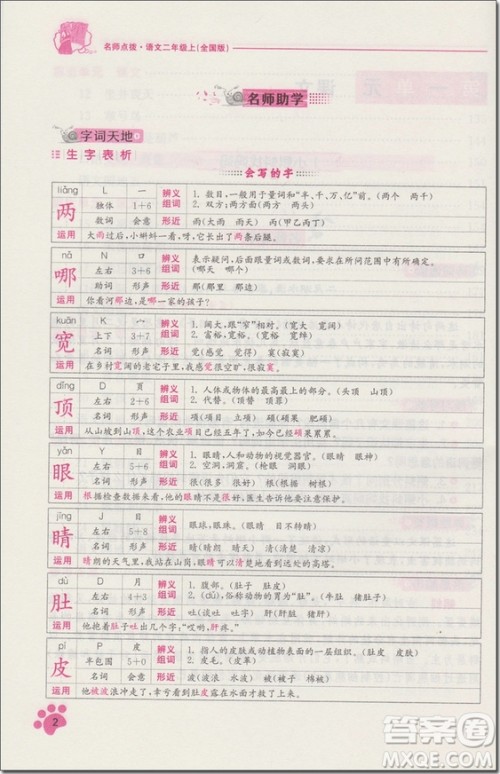 名师点拨·语文二年级上(全国版)
名师助学
字词天地
生字表析
会写的字
liǎng L 一 辨义组词 1. 数目,一般用于量词和“半、千、万、亿”前。(两个 两千)
两 独体 1+6 2. 双方;两方面。(两可 两全 两便)
数词 会意 形近 雨(雨点 雨水) 丙(甲乙丙丁)
运用 大雨过后,小蝌蚪一看,呀,它长出了两条后腿。
nǎ N 口 辨义组词 表示疑问,后面跟量词或数词,要求在所问范围中有所确定。
哪 左右 3+6 (哪天 哪个)
助词 形声 形近 那(那里 那些)
运用 你看河那边是哪一家的孩子?
kuān K 宀 辨义组词 1. 阔大,跟“窄”相对。(宽大 宽广)
宽 上下 3+7 2. 富裕,宽裕。(宽裕 宽绰)
名词 形声 形近 觉(感觉 觉得) 寞(寂寞)
运用 在乡村宽阔的老宅子里,我感觉很空旷,很寂寞。
dǐng D 页 辨义组词 1. 人体或物体的最高最上的部分。(头顶 山顶)
顶 左右 2+6 2. 代替。(顶替 顶班)
名词 形声 形近 项(项目 项链) 硕(硕果 肥硕)
运用 从山脚到山顶,这个农业项目已经五年了,如今已是硕果累累。
yǎn Y 目 辨义组词 1. 眼睛,人和动物的视觉器官。(眼睛 眼神)
眼 左右 5+6 2. 空洞,洞窟。(枪眼 泉眼)
名词 形声 形近 很(很多 很好) 根(根本 根据)
运用 根据检查数据来看,他的眼睛不是很好,医生告诉他要注意保护。
jīng J 目 辨义组词 眼球,眼珠。(眼睛 目不转睛)
睛 左右 5+8
名词 形声 形近 晴(晴天 晴朗) 清(清楚 清凉)
运用 晴朗的天气里,我站在山岗,眼睛可以清楚地看到远处的高塔。
dù D 月 辨义组词 1. 腹部。(肚子 肚皮)
肚 左右 4+3 2. (dǔ),俗称动物的胃为“肚”。(牛肚 猪肚)
名词 形声 形近 吐(谈吐 吐字) 肝(肝脏 猪肝)
运用 他抱着肚子吐出几个字:“哎哟,肝疼。”
pí P 皮 辨义组词 1. 指人的皮肤或动植物表面的一层组织。(肚皮 皮肤)
皮 半包围 5+0 2. 皮毛。(皮革)
名词 会意 形近 波(波浪 水波) 被(被子 棉被)
运用 他被波浪冲走了,幸亏看到出皮肤在水面才以得救。
2
答案圈
MXQE.COM